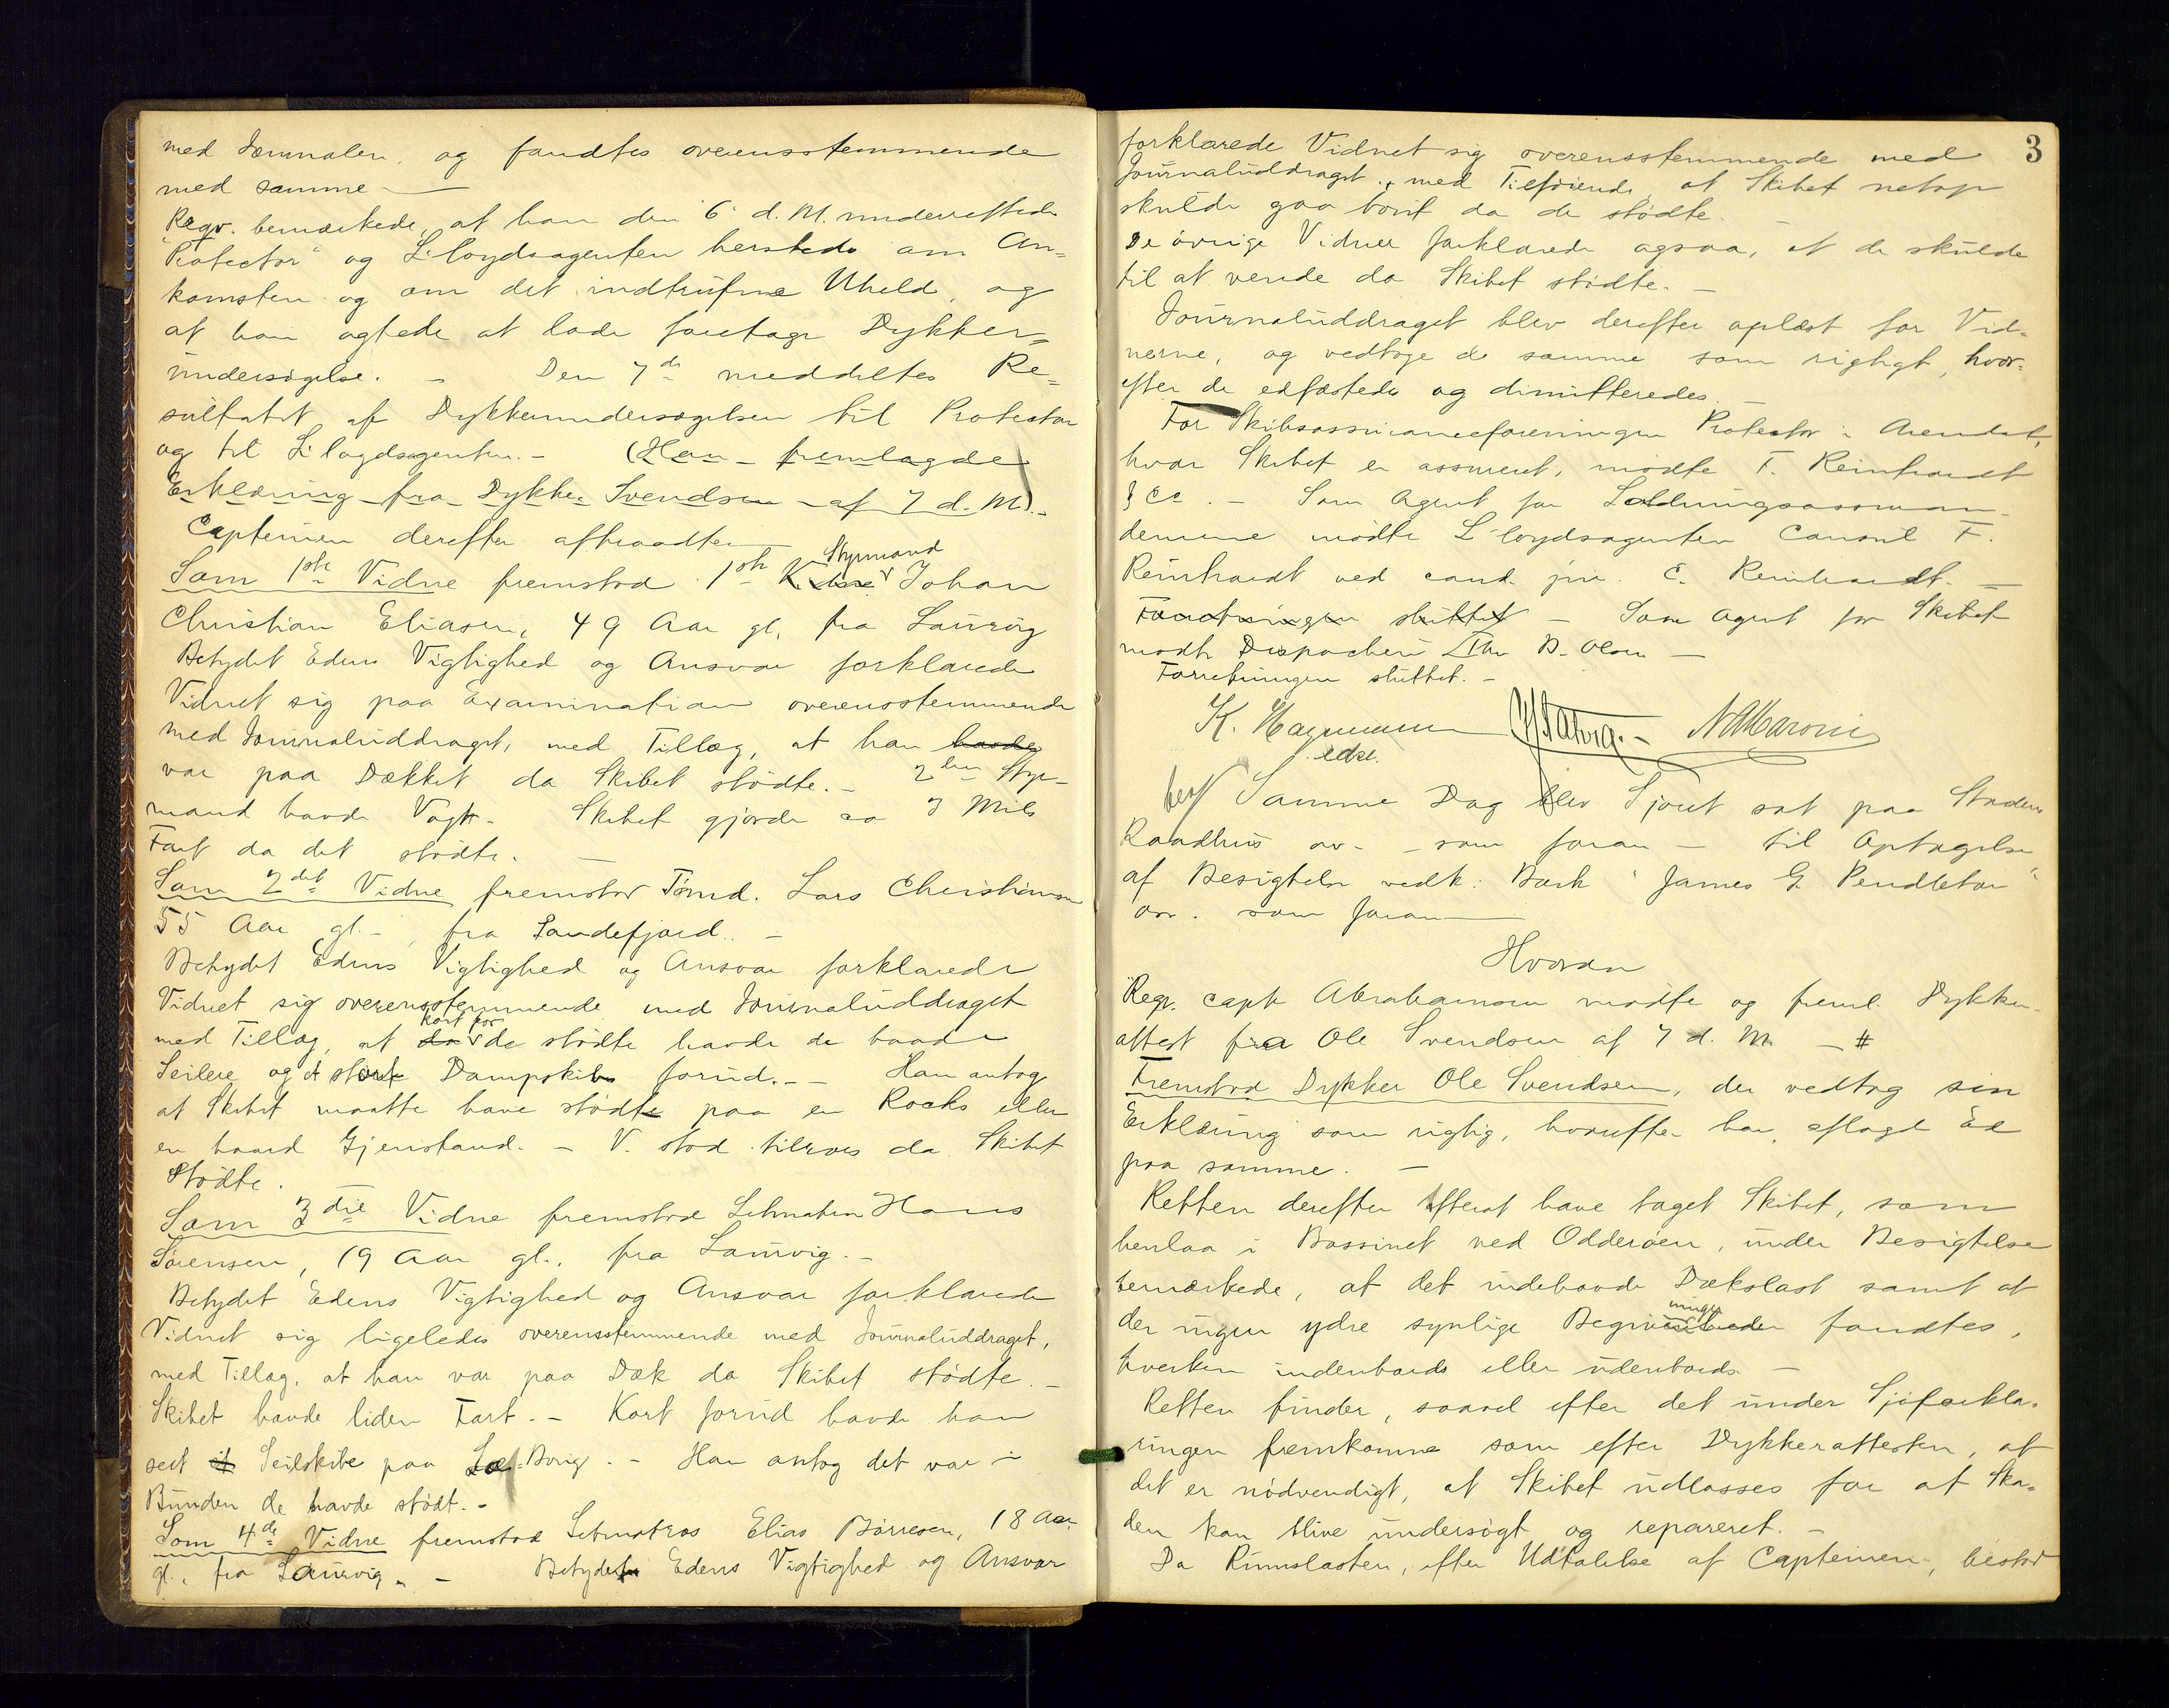 med Journalen, og fandtes overensstemmende
med samme —
Reqv. bemærkede, at han den 6 d. M. underrettede
"Protector" og Lloydsagenten hersteds om An=
komsten og om det indtrufne Uheld, og
at han agtede at lade foretage Dykker=
undersøgelse. – Den 7de meddeltes Re=
sultatet af Dykkerundersøgelsen til Protector
og til Lloydsagenten. – (Han fremlagde
Erklæring fra Dykker Svendsen af 7 d. M). –
Capteinen derefter aftraadte
Som 1ste Vidne fremstod 1ste Styrmand Johan
Christian Eliasen, 49 Aar gl. fra Laurvig
Betydet Edens Vigtighed og Ansvar forklarede
Vidnet sig paa Examination overensstemmende
med Journaluddraget, med Tillæg, at han havde
var paa Dækket da Skibet stødte. – 2den Styr-
mand havde Vagt. – Skibet gjorde ca 3 Mils
Fart da det stødte. —
Som 2det Vidne fremstod Tømd. Lars Christiansen
55 Aar gl. –, fra Sandefjord. –
Betydet Edens Vigtighed og Ansvar forklarede
Vidnet sig overensstemmende med Journaluddraget
med Tillæg, at da kort før de stødte havde de baade
Seilere og et stort Dampskib forud. – – Han antog
at Skibet maatte have stødt paa en Rocks eller
en haard Gjenstand. – V. stod tilrors da Skibet
stødte.
Som 3die Vidne fremstod Letmatros Hans
Sørensen, 19 Aar gl., fra Laurvig. –
Betydet Edens Vigtighed og Ansvar forklarede
Vidnet sig ligeledes overensstemmende med Journaluddraget,
med Tillæg, at han var paa Dæk da Skibet stødte. –
Skibet havde liden Fart. – Kort forud havde han
seet et Seilskibe paa Boug. – Han antog det var i
Bunden de havde stødt. –
Som 4de Vidne fremstod Letmatros Elias Børresen, 18 Aar
gl., fra Laurvig. – Betydet Edens Vigtighed og Ansvar
3
forklarede Vidnet sig overensstemmende med
Journaluddraget, med Tilføiende at Skibet netop
skulde gaa bout da de stødte.
De øvrige Vidner forklarede ogsaa, at de skulde
til at vende da Skibet stødte. –
Journaluddraget blev derefter oplæst for Vid-
nerne, og vedtoge de samme som rigtigt, hvor-
efter de edfæstede og dimitteredes. –
For Skibsassuranceforeningen Protector i Arendal,
hvor Skibet er assureret, mødte F. Reinhardt
& Co. – Som Agent for Ladningsassuran-
dørerne mødte Lloydsagenten Consul F.
Reinhardt ved cand. jur. C. Reinhardt. —
Forretningen sluttet – Som Agent for Skibet
mødte Dispacheur Th. B. Olsen —
Forretningen sluttet. –
K. Hagemann N A Maroni
edsv.
Samme Dag blev Sjøret sat paa Stadens
Raadhus av – som foran – til Optagelse
af Besigtelse vedk: Bark "James G. Pendleton"
osv. som foran —
Hvorda
Reqv. Capt. Abrahamsen mødte og freml. Dykker-
attest fra Ole Svendsen af 7 d. M. – #
Fremstod Dykker Ole Svendsen, der vedtog sin
Erklæring som rigtig, hvorefter han aflagde Ed
paa samme. –
Retten derefter efterat have taget Skibet, som
henlaa i Bassinet ved Odderøen, under Besigtelse
bemærkede, at det indehavde Dækslast samt at
der ingen ydre synlige Begivenheder ninger fandtes,
hverken indenbords eller udenbords. –
Retten finder, saavel efter det under Sjøforkla-
ringen fremkomne som efter Dykkerattesten, at
det er nødvendigt, at Skibet udlosses for at Ska-
den kan blive undersøgt og repareret. –
Da Rumslasten, efter Udtalelse af Capteinen, bestod